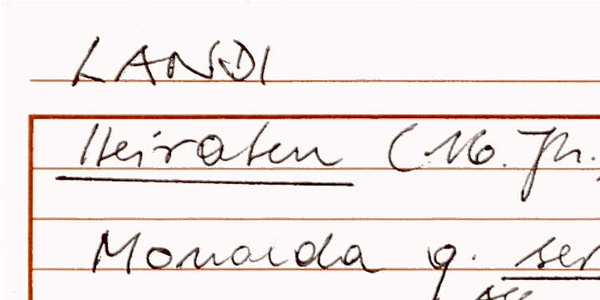 LANDI
Heiraten (16. Jh.
Monalda q. ser